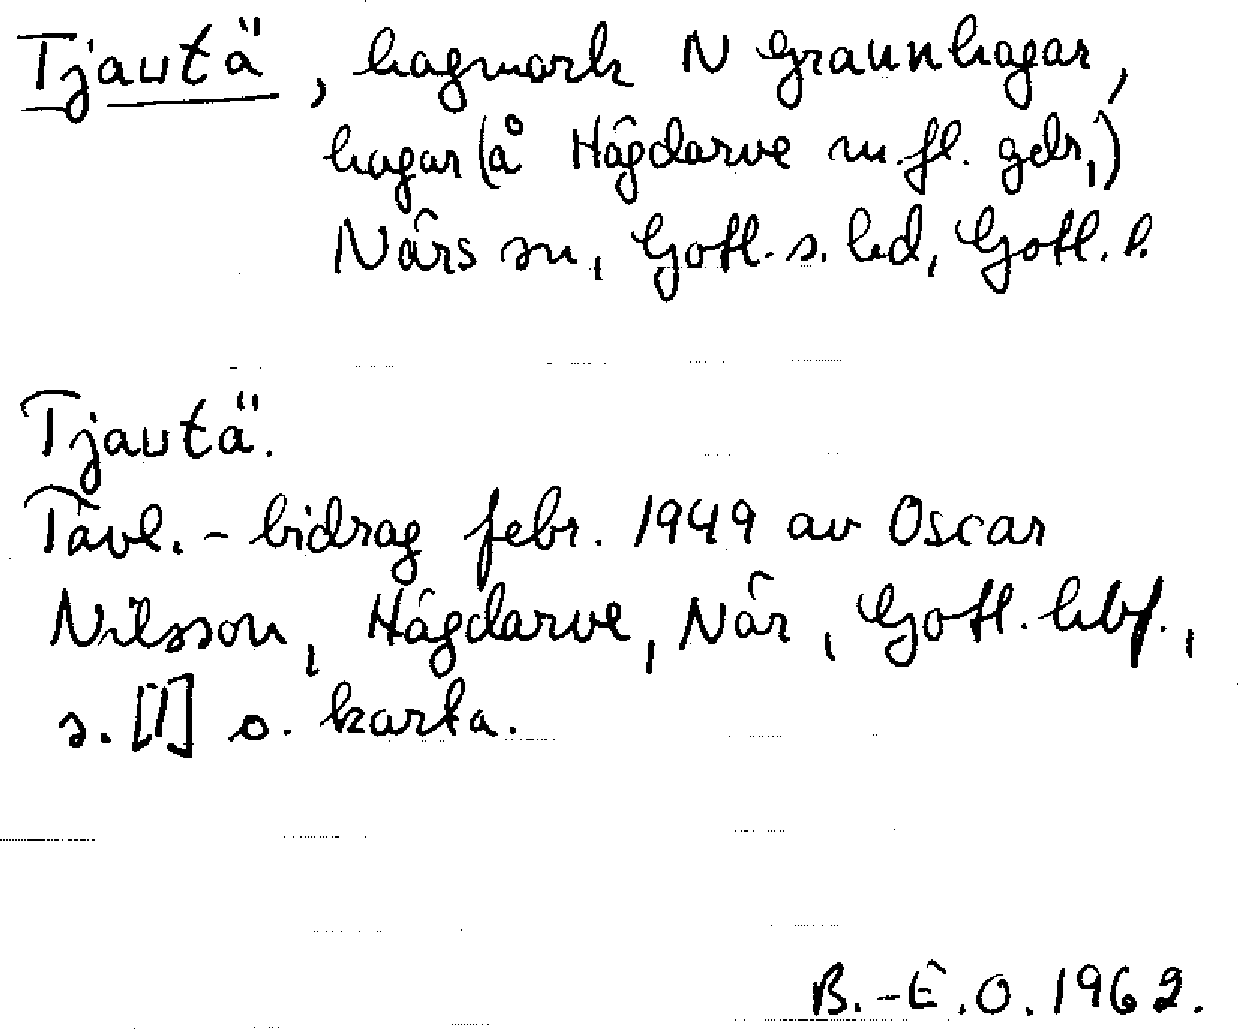 Tjautä, hagmark N Graunhagar,
hagar (å Hägdarve m.fl. gdr,)
Närs sn, Gotl. s. hd, Gotl. l.
Tjautä.
Tävl.-bidrag febr. 1949 av Oscar
Nilsson, Hägdarve, När, Gotl. hbf.,
s. [1] o. karta.
B.-E.O. 1962.